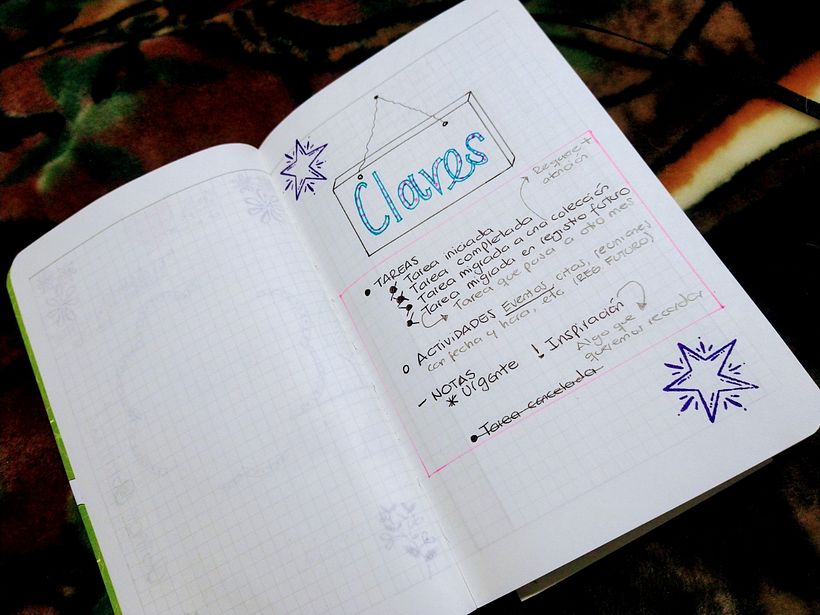 Claves
Requiere
atención
• TAREAS
Tarea iniciada
Tarea completada
Tarea migrada a una colección
Tarea migrada en registro futuro
Tarea que pasa a otro mes
○ ACTIVIDADES Eventos citas, reuniones
con fecha y hora, etc (REG. FUTURO)
– NOTAS
* Urgente ! Inspiración
Algo que
queremos recordar
• Tarea cancelada